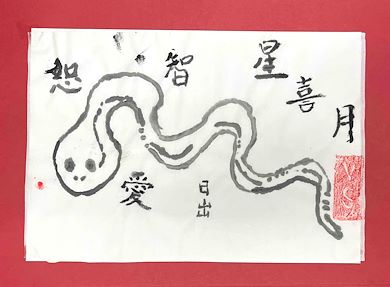 恕
智
星
喜
月
愛
日出
VS